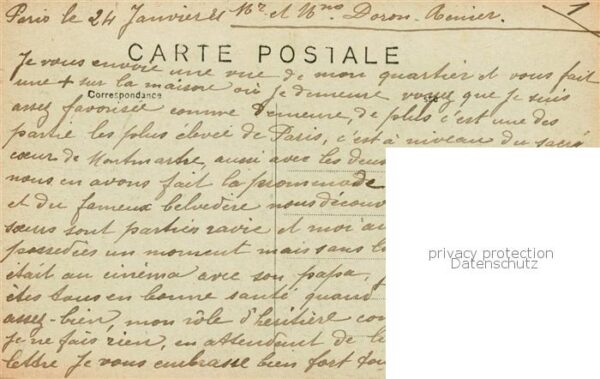 Paris le 24 Janvier 21 Mr et Mme Doron-Renier. 1
CARTE POSTALE
Je vous envoie une vue de mon quartier et vous fait
une + sur la maison où je demeure voyez que je suis
Correspondance
assez favorisée comme demeure, de plus c'est une des
partie les plus élevée de Paris, c'est à niveau du sacré
cœur de Montmartre, aussi avec les deux
nous en avons fait la promenade
et du fameux belvédère nous
sœurs sont parties ravie et moi
possedées un moment mais sans
était au cinéma avec son papa,
êtes tous en bonne santé quand
assez-bien, mon rôle d'héritière
je ne fais rien, en attendant de
lettre Je vous embrasse bien fort
privacy protection
Datenschutz